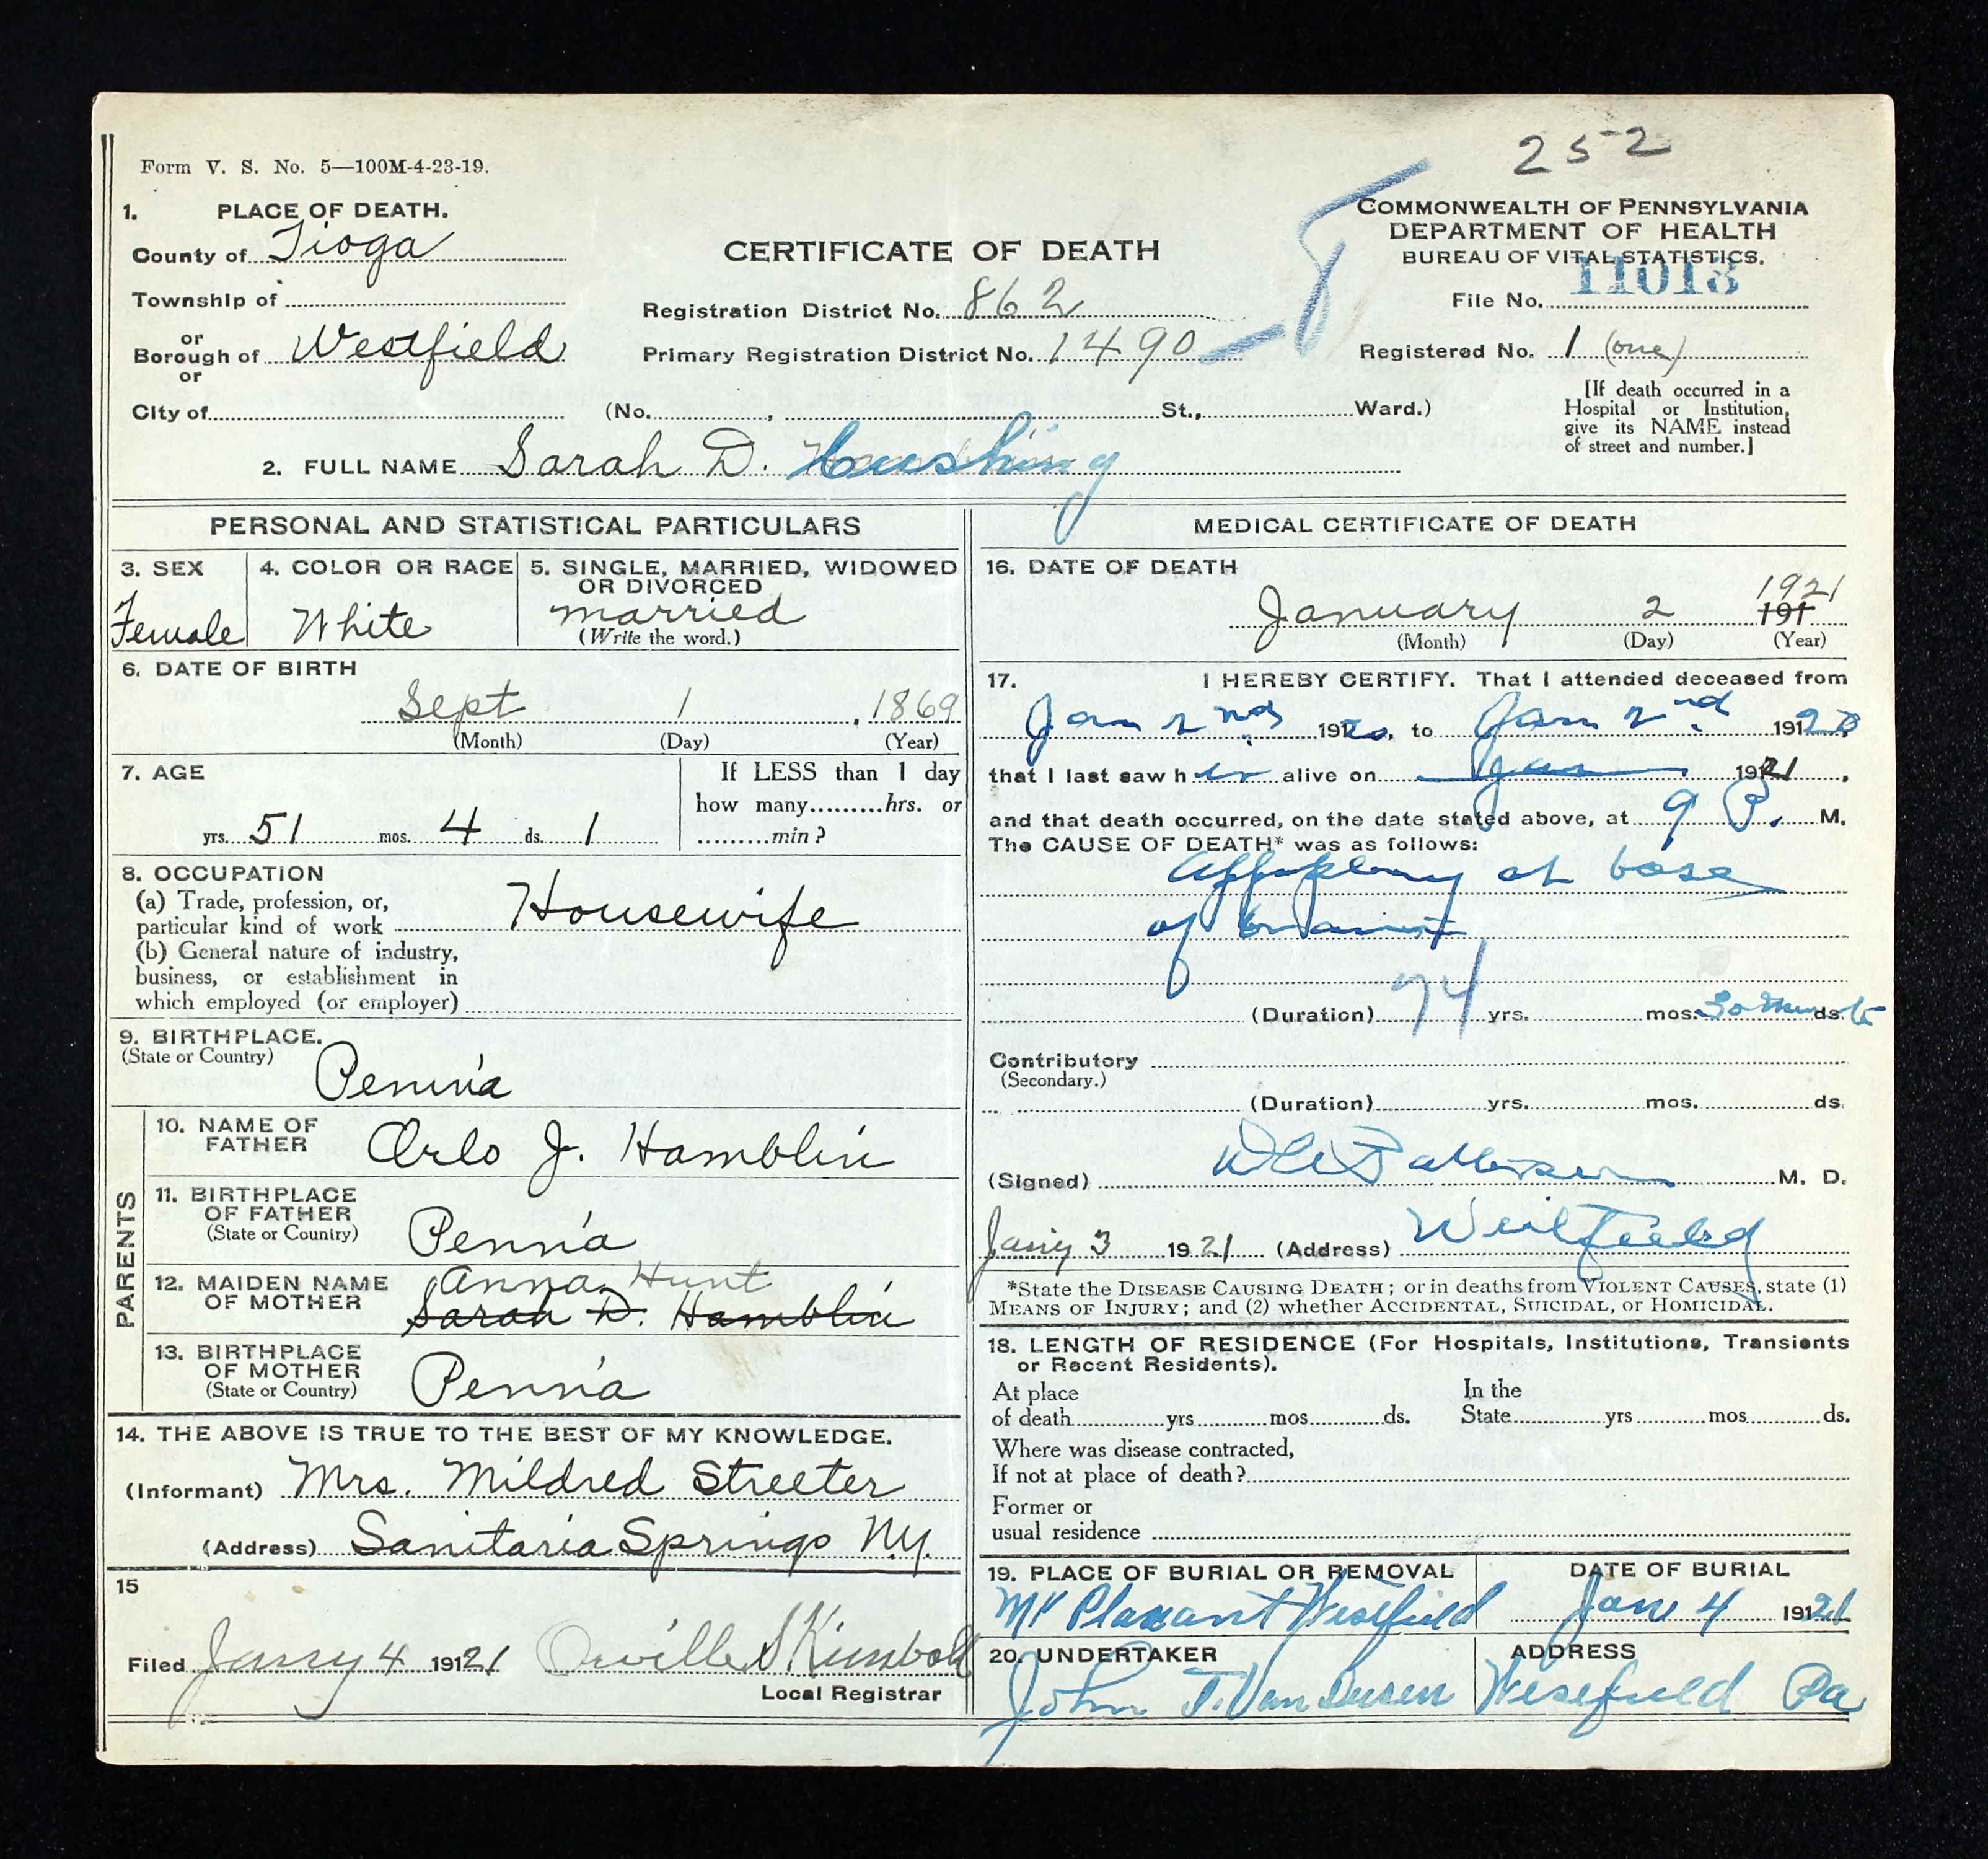 252
Form V. S. No. 5—100M-4-23-19.
1. PLACE OF DEATH.
County of Tioga
Township of
or
Borough of Westfield
or
City of (No. , St., Ward.)
CERTIFICATE OF DEATH
Registration District No. 862
Primary Registration District No. 1490
COMMONWEALTH OF PENNSYLVANIA
DEPARTMENT OF HEALTH
BUREAU OF VITAL STATISTICS.
File No. 11013
Registered No. 1 (one)
[If death occurred in a
Hospital or Institution,
give its NAME instead
of street and number.]
2. FULL NAME Sarah D. Cushing
PERSONAL AND STATISTICAL PARTICULARS
3. SEX
Female
4. COLOR OR RACE
White
5. SINGLE, MARRIED, WIDOWED
OR DIVORCED
married
(Write the word.)
6. DATE OF BIRTH
Sept 1, 1869
(Month) (Day) (Year)
7. AGE
yrs. 51 mos. 4 ds. 1
If LESS than 1 day
how many.........hrs. or
.........min?
8. OCCUPATION
(a) Trade, profession, or,
particular kind of work Housewife
(b) General nature of industry,
business, or establishment in
which employed (or employer)
9. BIRTHPLACE.
(State or Country)
Penn'a
PARENTS
10. NAME OF
FATHER
Orlo J. Hamblin
11. BIRTHPLACE
OF FATHER
(State or Country)
Penn'a
12. MAIDEN NAME
OF MOTHER
Anna Hunt
Sarah D. Hamblin
13. BIRTHPLACE
OF MOTHER
(State or Country)
Penn'a
14. THE ABOVE IS TRUE TO THE BEST OF MY KNOWLEDGE.
(Informant) Mrs. Mildred Streeter
(Address) Sanitaria Springs N.Y.
15
Filed Janry 4 1921 Orville S Kimball
Local Registrar
MEDICAL CERTIFICATE OF DEATH
16. DATE OF DEATH
January 2 1921
191
(Month) (Day) (Year)
17. I HEREBY CERTIFY. That I attended deceased from
Jan 2nd 1920, to Jan 2nd 1920,
that I last saw h er alive on Jan 1921,
and that death occurred, on the date stated above, at 9 P. M.
The CAUSE OF DEATH* was as follows:
at base
of
74
(Duration) yrs. mos. 30 ds.
Contributory
(Secondary.)
(Duration) yrs. mos. ds.
(Signed) M. D.
Jany 3 1921 (Address) Westfield
*State the DISEASE CAUSING DEATH; or in deaths from VIOLENT CAUSES, state (1)
MEANS OF INJURY; and (2) whether ACCIDENTAL, SUICIDAL, or HOMICIDAL.
18. LENGTH OF RESIDENCE (For Hospitals, Institutions, Transients
or Recent Residents).
At place
of death yrs mos ds.
In the
State yrs mos ds.
Where was disease contracted,
If not at place of death?
Former or
usual residence
19. PLACE OF BURIAL OR REMOVAL
Mt Pleasant Westfield
DATE OF BURIAL
Jan 4 1921
20. UNDERTAKER
John T. Van Dusen
ADDRESS
Westfield Pa